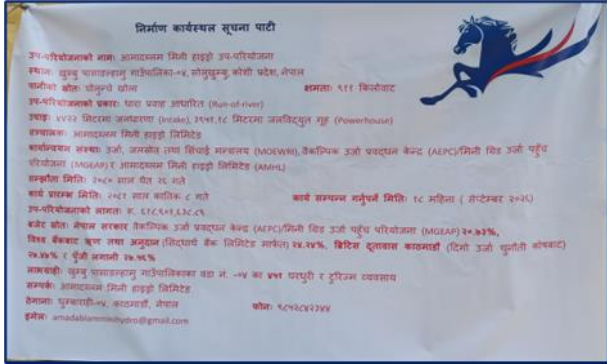 निर्माण कार्यस्थल सूचना पाटी
उप-परियोजनाको नाम: आमादब्लम मिनी हाइड्रो उप-परियोजना
स्थान: खुम्बु पासाङल्हामु गाउँपालिका-०४, सोलुखुम्बु, कोशी प्रदेश, नेपाल
पानीको स्रोत: खोला क्षमता: ९११ किलोवाट
उप-परियोजनाको प्रकार: धारा प्रवाह आधारित (Run-of-river)
उचाइ: ४४२२ मिटरमा जलधारणा (Intake), मिटरमा जलविद्युत गृह (Powerhouse)
सञ्चालक: आमादब्लम मिनी हाइड्रो लिमिटेड
कार्यान्वयन संस्था: उर्जा, जलस्रोत तथा सिंचाई मन्त्रालय (MOEWRI), वैकल्पिक उर्जा प्रवर्द्धन केन्द्र (AEPC)/मिनी ग्रिड उर्जा पहुँच
परियोजना (MGEAP) र आमादब्लम मिनी हाइड्रो लिमिटेड (AMHL)
सम्झौता मिति: २०८० साल चैत २६ गते
कार्य प्रारम्भ मिति: २०८१ साल कात्तिक ८ गते कार्य सम्पन्न गर्नुपर्ने मिति: १८ महिना ( सेप्टेम्बर २०२६)
उप-परियोजनाको लागत: रु.
बजेट स्रोत: नेपाल सरकार वैकल्पिक उर्जा प्रवर्द्धन केन्द्र (AEPC)/मिनी ग्रिड उर्जा पहुँच परियोजना (MGEAP) २०.७३%,
विश्व बैंकबाट ऋण तथा अनुदान (सिद्धार्थ बैंक लिमिटेड मार्फत) २४.२४%, ब्रिटिस दूतावास काठमाडौं (दिगो उर्जा चुनौती कोषबाट)
२७.४७% र पुँजी लगानी २७.५६%
लाभग्राही: खुम्बु पासाङल्हामु गाउँपालिकाका वडा नं. -०४ का घरधुरी र टुरिज्म व्यवसाय
सम्पर्क: आमादब्लम मिनी हाइड्रो लिमिटेड
ठेगाना: धुम्बाराही-०४, काठमाडौं, नेपाल फोन: ९८५२८४२३४४
इमेल: amadablamminihydro@gmail.com